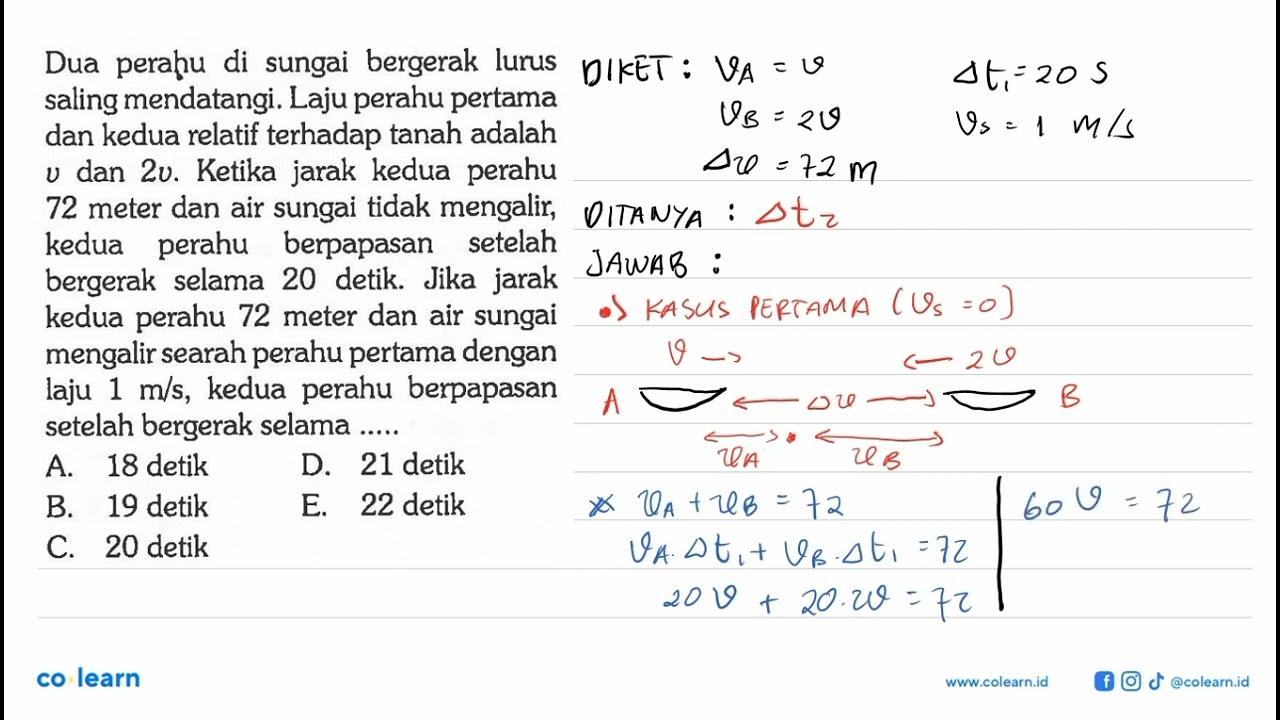 Dua perahu di sungai bergerak lurus
saling mendatangi. Laju perahu pertama
dan kedua relatif terhadap tanah adalah
v dan 2v. Ketika jarak kedua perahu
72 meter dan air sungai tidak mengalir,
kedua perahu berpapasan setelah
bergerak selama 20 detik. Jika jarak
kedua perahu 72 meter dan air sungai
mengalir searah perahu pertama dengan
laju 1 m/s, kedua perahu berpapasan
setelah bergerak selama .....
A. 18 detik D. 21 detik
B. 19 detik E. 22 detik
C. 20 detik
DIKET : v_A = v Δt₁ = 20 s
v_B = 2v v_s = 1 m/s
Δx = 72 m
DITANYA : Δt₂
JAWAB :
•) KASUS PERTAMA (v_s = 0)
v → ← 2v
A ← Δx → B
x_A x_B
* x_A + x_B = 72
v_A . Δt₁ + v_B . Δt₁ = 72
20v + 20.2v = 72
60v = 72
co learn
www.colearn.id
@colearn.id